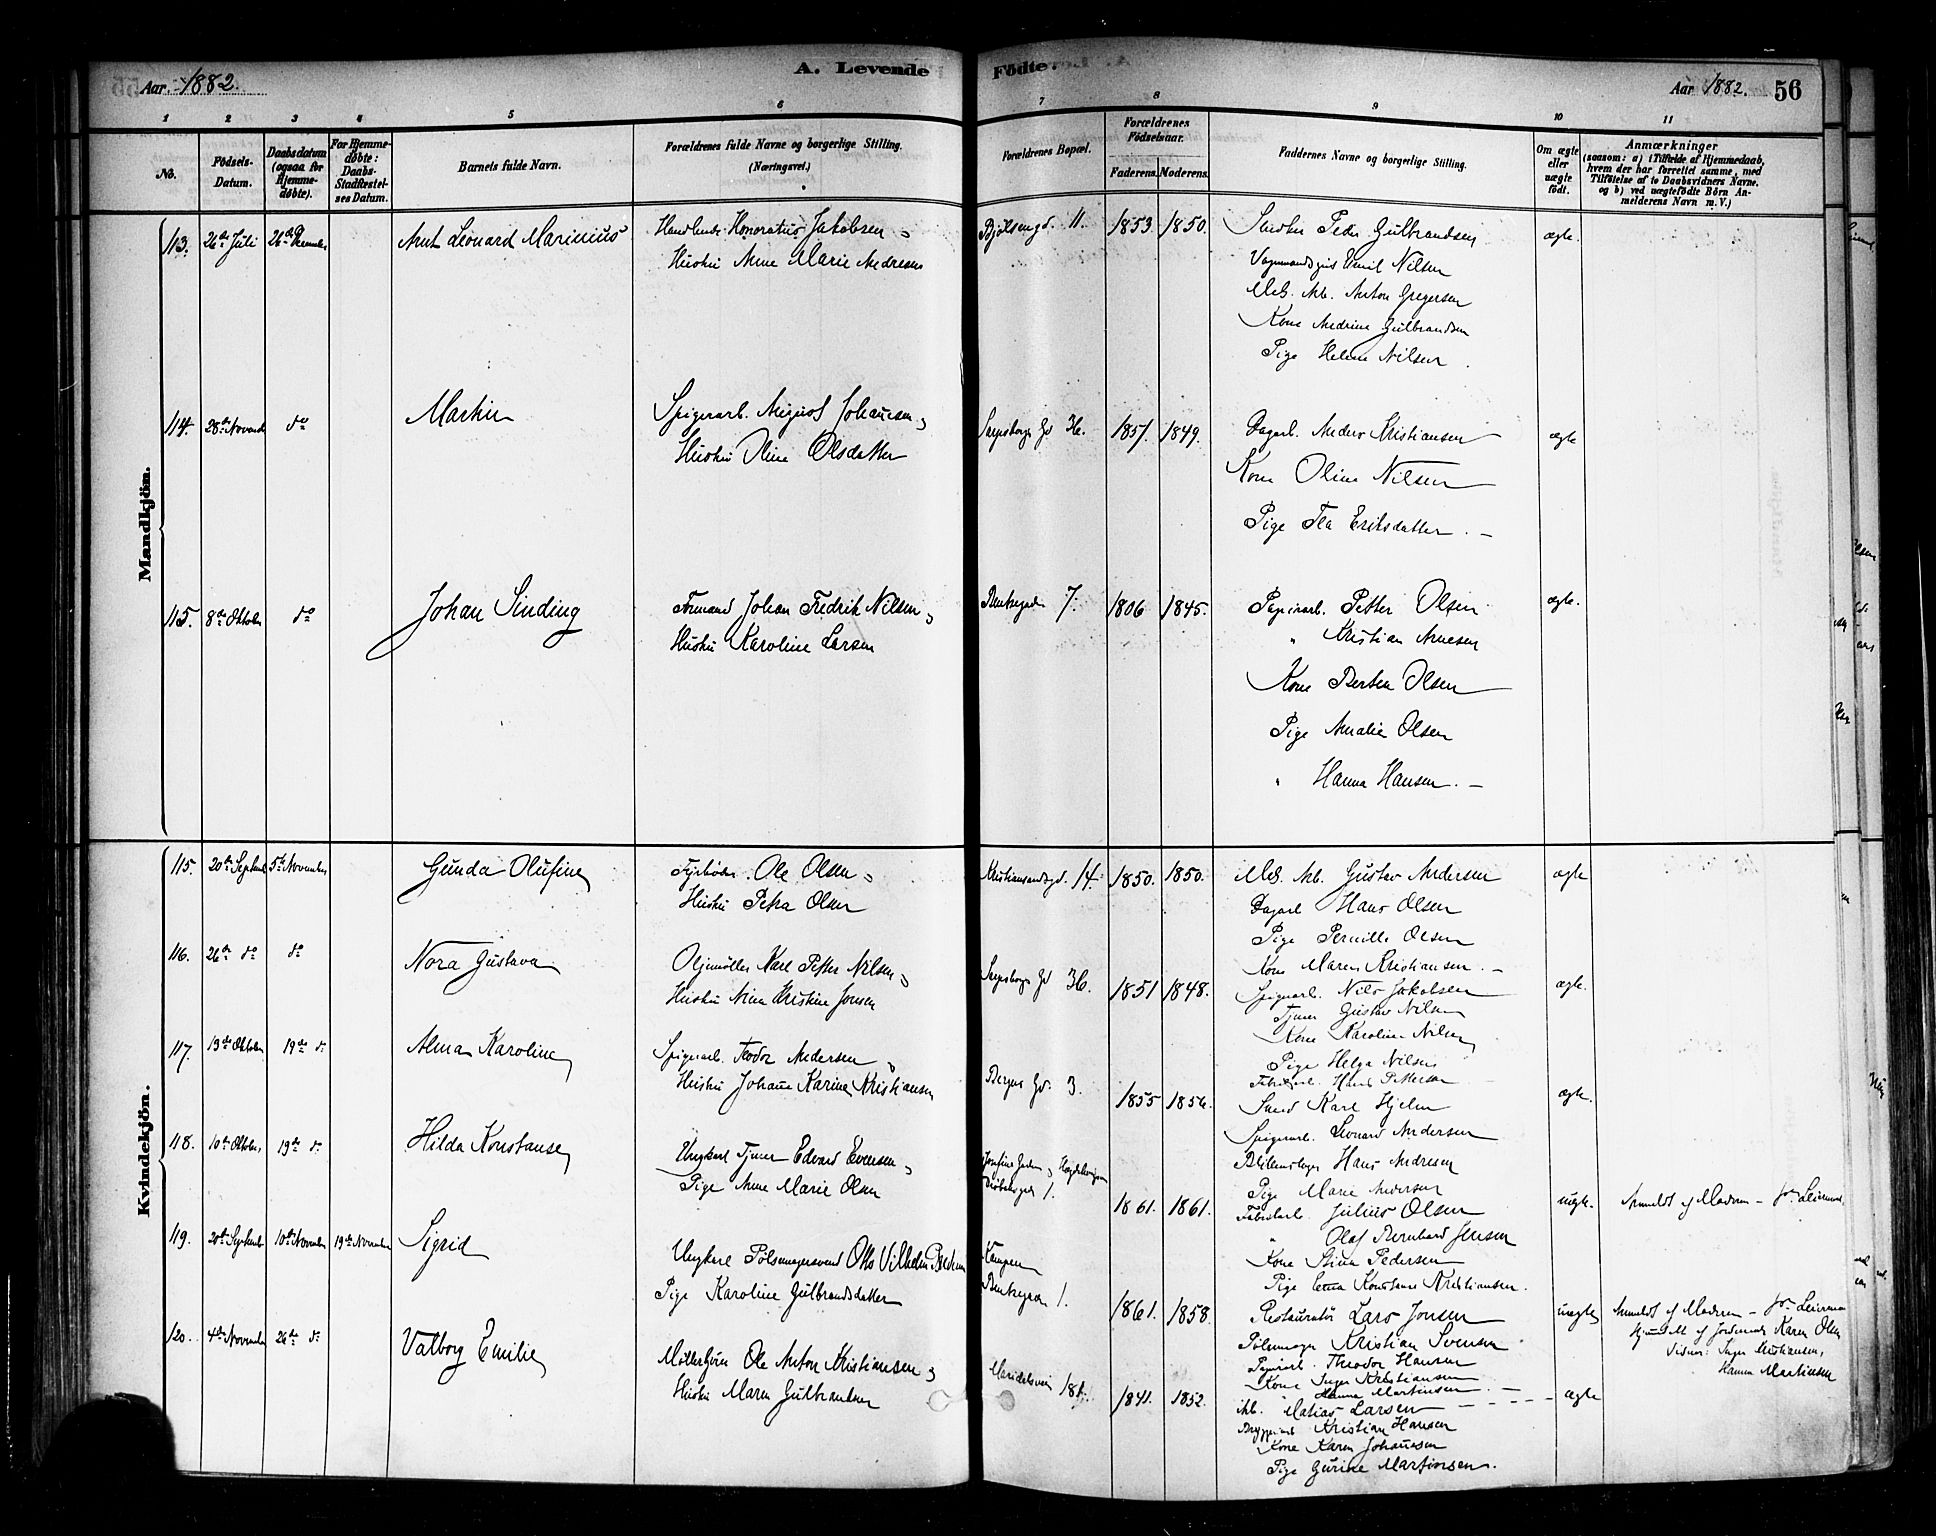 Aar 1882. A. Levende Fødte. Aar 1882. 56
1 2 3 4 5 6 7 8 9 10 11
No. Fødsels-Datum. Daabsdatum (ogsaa for Hjemmedøbte). For Hjemmedøbte: Daabs-Stadfæstelses Datum. Barnets fulde Navn. Forældrenes fulde Navne og borgerlige Stilling. (Næringsvei.) Forældrenes Bopæl. Forældrenes Fødselsaar. Faderens. Moderens. Faddernes Navne og borgerlige Stilling. Om ægte eller uægte født. Anmærkninger (saasom: a) i Tilfælde af Hjemmedaab, hvem der har forrettet samme, med Tilføielse af to Daabsvidners Navne, og b) ved uægtefødte Børn Anmelderens Navn m. V.)
Mandkjön.
113. 26de Juli 26de Arnt Leonard Marinius Honoratius Jakobsen 11. 1853. 1850. Peder Gulbrandsen ægte.
Hustru Anne Marie Andresen Emil Nilsen
Mek. Arb. Anton Gregersen
Kone Andrine Gulbrandsen
Pige Helene Nilsen
114. 28de November do Martin Spigerarb. August Johansen Sarpsborg Gd 36. 1851. 1849. Dagarb. Anders Kristiansen ægte
Hustru Oline Olsdatter Kone Oline Nilsen
Pige Tea Eriksdatter. —
115. 8de Oktober do Johan Sinding Formand Johan Fredrik Nilsen 7. 1806 1845. Papirarb. Petter Olsen ægte.
Hustru Karoline Larsen " Kristian Arnesen
Kone Bertea Olsen
Pige Amalie Olsen
" Hanna Hansen. —
Kvindekjön.
115. 20de Septemb 5te November Gunda Olufine Fyrbøder Ole Olsen Kristiansandsgd. 14. 1850. 1850. Mek. Arb. Gustav Andersen ægte
Hustru Petra Olsen Dagarb Hans Olsen
Pige Pernille Olsen
Kone Maren Kristiansen. —
116. 26de do do Nora Gustava Oljemøller Karl Petter Nilsen Sarpsborg Gd 36. 1851 1848. Spigerarb. Nils Jakobsen ægte.
Hustru Anna Kristine Jonsen Tjener Gustav Nilsen
Kone Karoline Nilsen
Pige Helga Nilsen
117. 13de Oktober 19de do Alma Karoline Spigerarb. Teodor Andersen Bergens Gd. 3. 1855 1856. Fabrikarb. Hans Pettersen ægte.
Hustru Johanne Karine Kristiansen Karl Hjelm
Spigerarb. Leonard Andersen
Hans Andresen
Pige Marie Andersen
118. 10de Oktober 19de do Hilda Konstanse Ungkarl Tjener Edvard Evensen 1. 1861. 1861. Fabrikarb. Julius Olsen uægte. Anmeldt af Moderen —
Pige Anne Marie Olsen " Olaf Bernhard Jensen
Kone Stina Pedersen
Pige Konstanse Kristiansen.
119. 20de Septemb 10de November 19de November Sigrid Ungkarl Pølsemagersvend Otto Vilhelm Kampen 1. 1861. 1858. Restauratør Lars Jonsen uægte Anmeldt af Moderen —
Pige Karoline Gulbrandsdatter Pølsemager Kristian Svensen Hjemdøbt af Jordemoder Karen Olsen
Papirarb. Theodor Hansen Vidner: Inger Kristiansen,
Kone Inger Kristiansen Hanna Martinsen
" Hanna Martinsen. —
120. 4de November 26de do Valborg Emilie Ole Anton Kristiansen Maridalsveien 1841. 1852. Arb. Matias Larsen ægte
Hustru Maren Gulbrandsen Kristian Hansen
Kone Karen Johannesen
Pige Gurine Martinsen.